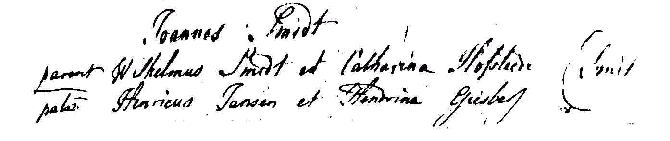 Joannes Smidt
parent Wilhelmus Smidt et Catharina Hofstede (Smit
patri Henricus Jansen et Hendrina Giesbers